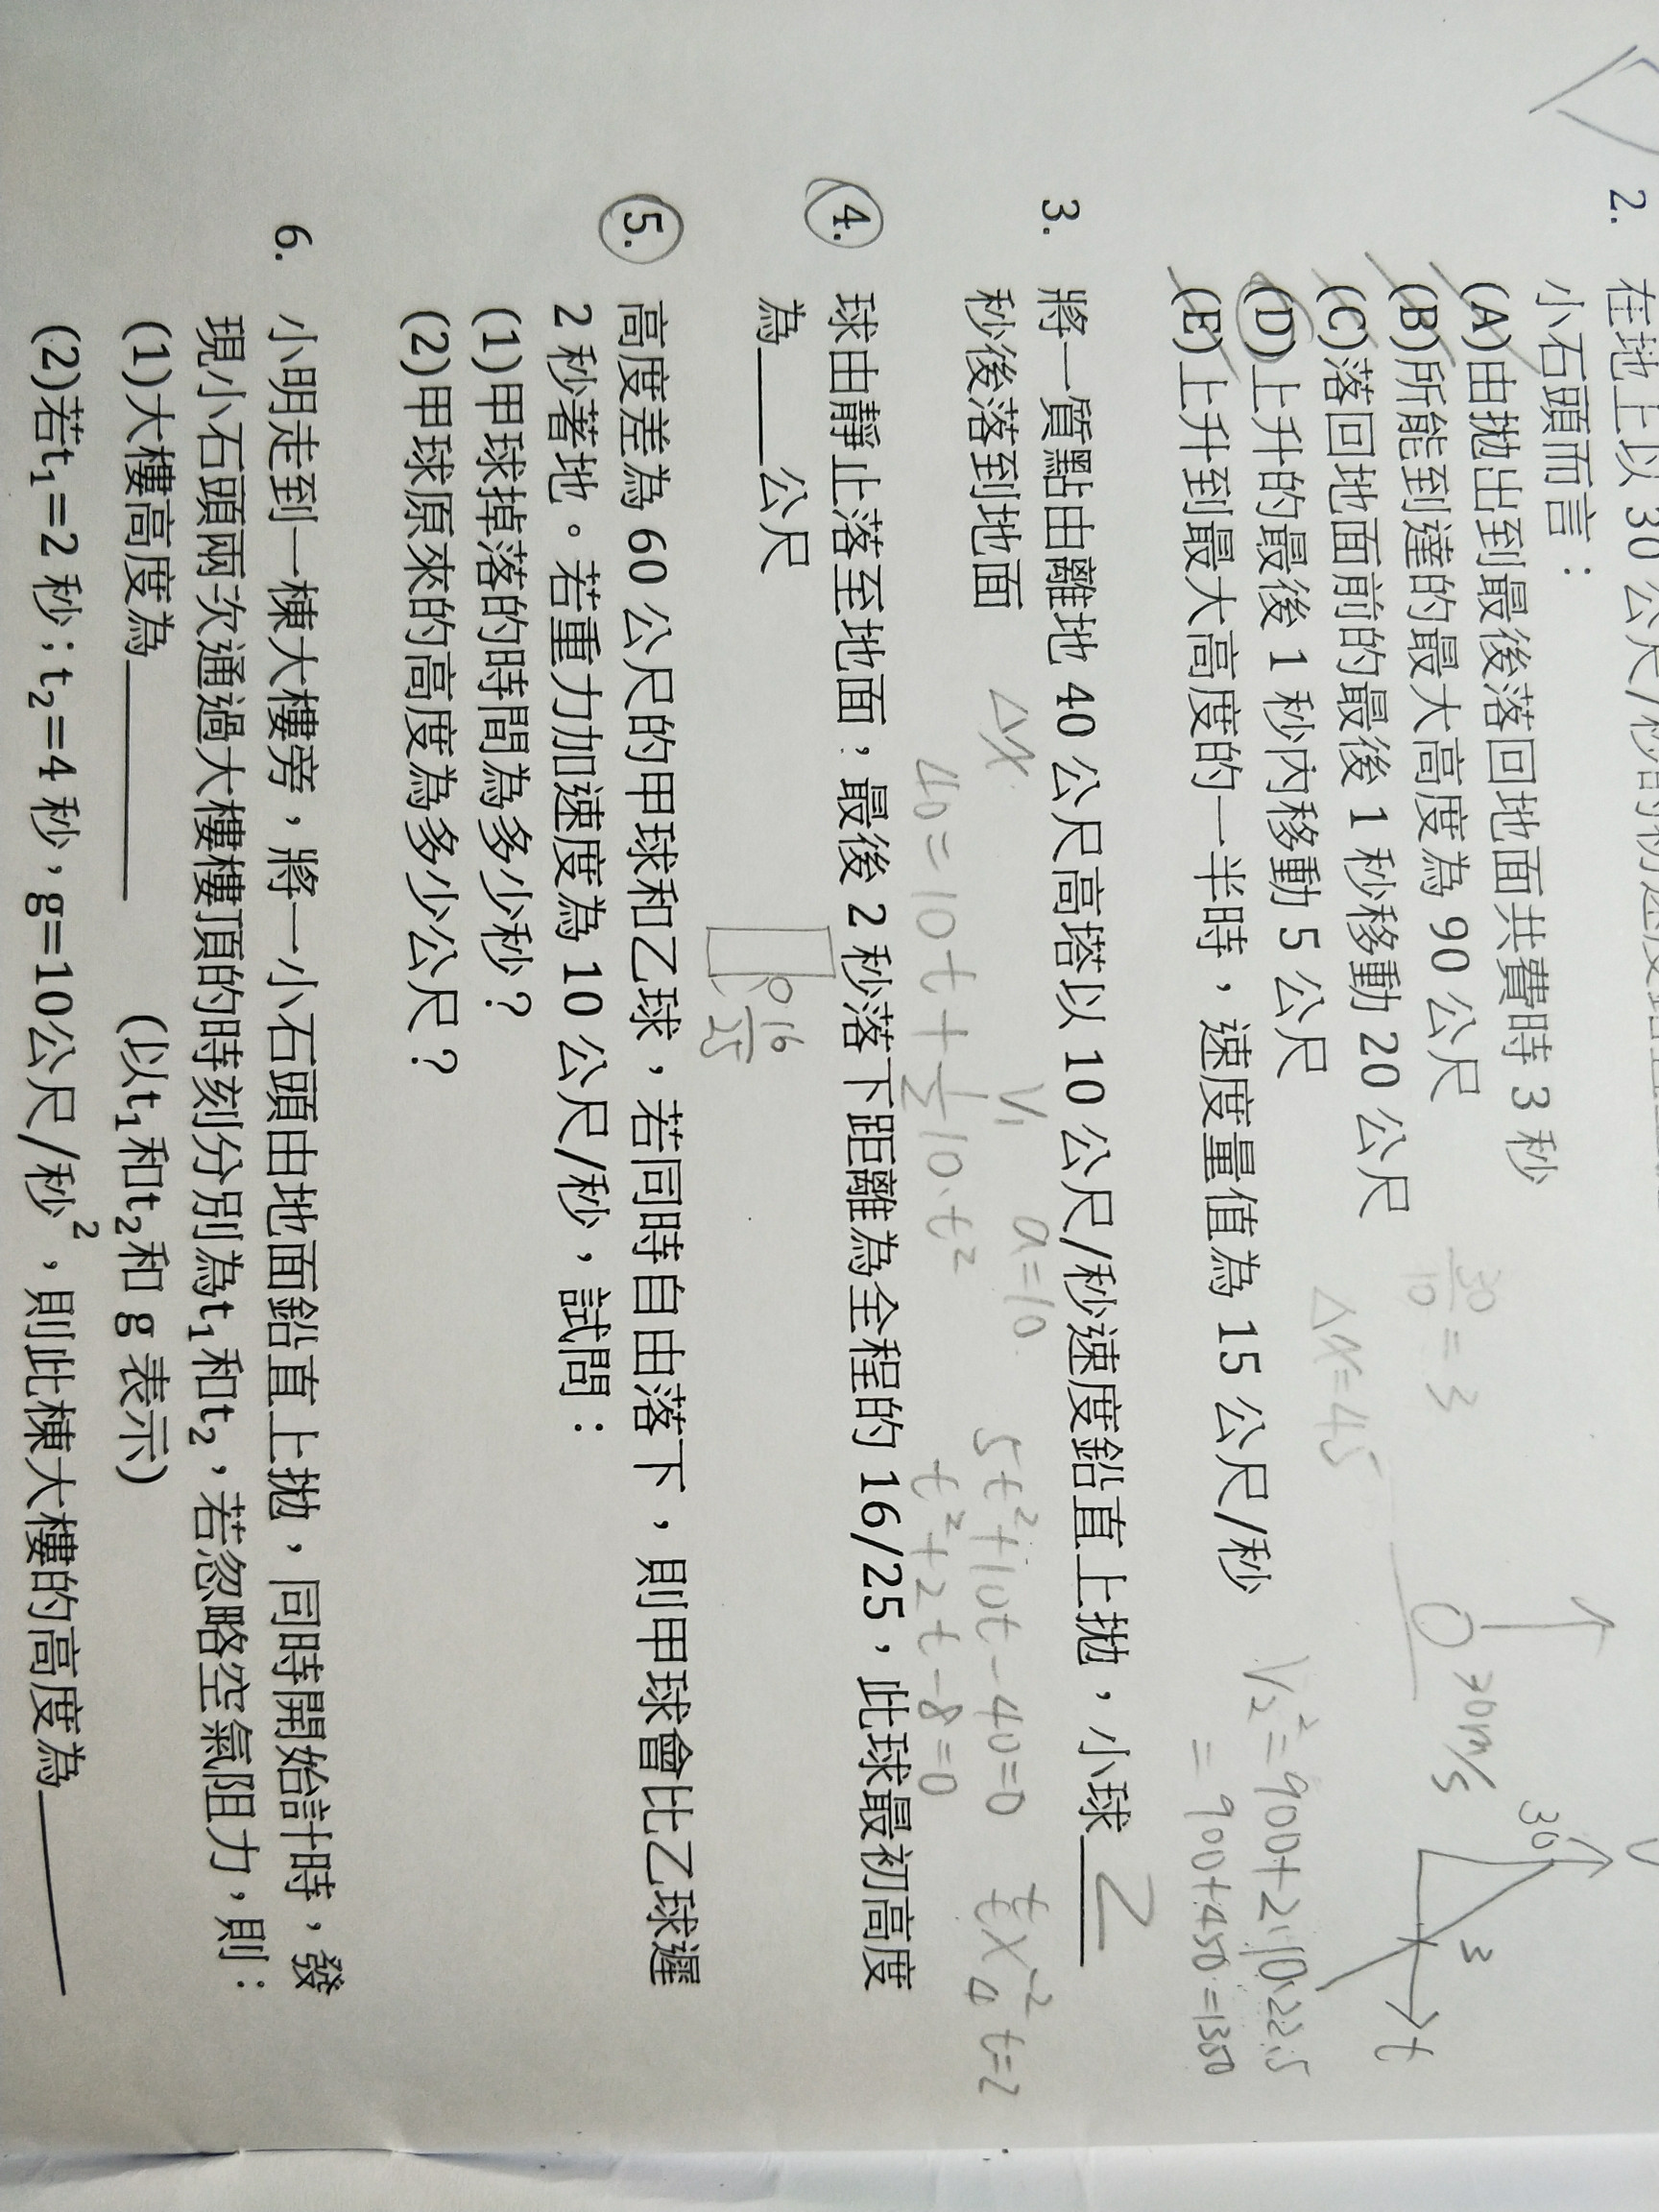 2. 在地上以 30 公尺/秒
小石頭而言：
(A)由拋出到最後落回地面共費時 3 秒
(B)所能到達的最大高度為 90 公尺
(C)落回地面前的最後 1 秒移動 20 公尺
(D)上升的最後 1 秒內移動 5 公尺
(E)上升到最大高度的一半時，速度量值為 15 公尺/秒
30/10 = 3
Δx=45
30m/s
30
3
t
V₂²=900+2·10·22.5
=900+450=1350
3. 將一質點由離地 40 公尺高塔以 10 公尺/秒速度鉛直上拋，小球 2
秒後落到地面
Δx
V₁
a=10
40=10t+½·10·t²
5t²+10t-40=0
t²+2t-8=0
t -2
t 4
t=2
4. 球由靜止落至地面，最後 2 秒落下距離為全程的 16/25，此球最初高度
為____公尺
16/25
5. 高度差為 60 公尺的甲球和乙球，若同時自由落下，則甲球會比乙球遲
2 秒著地。若重力加速度為 10 公尺/秒，試問：
(1)甲球掉落的時間為多少秒？
(2)甲球原來的高度為多少公尺？
6. 小明走到一棟大樓旁，將一小石頭由地面鉛直上拋，同時開始計時，發
現小石頭兩次通過大樓樓頂的時刻分別為t₁和t₂，若忽略空氣阻力，則：
(1)大樓高度為________ (以t₁和t₂和 g 表示)
(2)若t₁=2 秒；t₂=4 秒，g=10公尺/秒²，則此棟大樓的高度為________